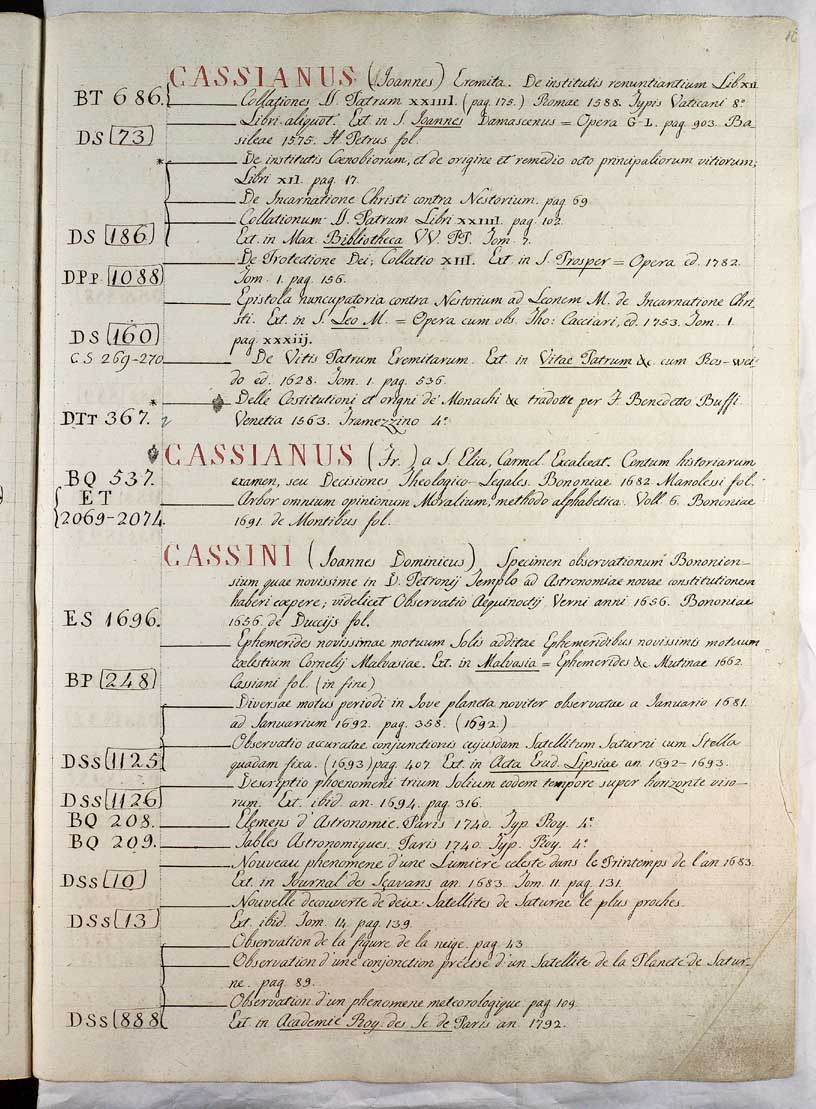 CASSIANUS (Joannes) Eremita. De institutis renuntiantium Lib XII.
BT 686. Collationes SS. Patrum XXIIII. (pag. 175.) Romae 1588. Typis Vaticani 8°
Libri aliquot. Ext in S. Joannes Damascenus = Opera G-L. pag. 903. Ba-
DS 73 sileae 1575. H. Petrus fol.
* De institutis Coenobiorum, et de origine et remedio octo principaliorum vitiorum;
Libri XII. pag. 17.
De Incarnatione Christi contra Nestorium. pag 69.
Collationum SS. Patrum Libri XXIIII. pag. 102.
DS 186 Ext. in Max. Bibliotheca VV. PP. Tom. 7.
De Protectione Dei; Collatio XIII. Ext. in S. Prosper = Opera ed. 1782.
DPP. 1088 Tom. 1. pag. 156.
Epistola nuncupatoria contra Nestorium ad Leonem M. de Incarnatione Chri-
sti. Ext. in S. Leo M. = Opera cum obs. Tho: Cacciari, ed. 1753. Tom. 1.
DS 160 pag. xxxiij.
CS 269-270 De Vitis Patrum Eremitarum. Ext in Vitae Patrum &c. cum Ros-wei-
do ed. 1628. Tom. 1. pag. 536.
* Delle Costitutioni et origni de' Monachi &c tradotte per F. Benedetto Buffi.
DTT 367. Venetia 1563. Tramezzino 4°
CASSIANUS (Fr.) a S. Elia, Carmel. Excalceat. Centum historiarum
BQ 537. examen, seu Decisiones Theologico-Legales. Bononiae 1682. Manolessi fol.
ET Arbor omnium opinionum Moralium, methodo alphabetica. Voll. 6. Bononiae
2069-2074. 1691. de Montibus fol.
CASSINI (Joannes Dominicus) Specimen observationum Bononien-
sium quae novissime in D. Petronij Templo ad Astronomiae novae constitutionem
haberi coepere; videlicet Observatio Aequinoctij Verni anni 1656. Bononiae
ES 1696. 1656. de Duccijs fol.
Ephemerides novissimae motuum Solis additae Ephemeridibus novissimis motuum
coelestium Cornelij Malvasiae. Ext. in Malvasia = Ephemerides &c. Mutinae 1662.
BP 248 Cassiani fol. (in fine)
Diversae motus periodi in Jove planeta noviter observatae a Januario 1681.
ad Januarium 1692. pag. 358. (1692.)
Observatio accuratae conjunctionis cujusdam Satellitum Saturni cum Stella
DSS 1125 quadam fixa. (1693) pag. 407. Ext. in Acta Erud. Lipsiae an. 1692-1693.
Descriptio phoenomeni trium Solium eodem tempore super horizonte viso-
DSS 1126 rum. Ext. ibid. an. 1694. pag. 316.
BQ 208. Elemens d'Astronomie. Paris 1740. Typ. Roy. 4°
BQ 209. Tables Astronomiques. Paris 1740. Typ. Roy. 4°
Nouveau phenomene d'une Lumiere celeste dans le Printemps de l'an 1683.
DSS 10 Ext. in Journal des Sçavans an. 1683. Tom. 11. pag. 131.
Nouvelle decouverte de deux Satellites de Saturne le plus proches.
DSS 13 Ext. ibid. Tom. 14. pag. 139.
Observation de la figure de la neige. pag. 43.
Observation d'une conjonction precise d'un Satellite de la Planete de Satur-
ne. pag. 89.
Observation d'un phenomene meteorologique pag. 109.
DSS 888 Ext. in Academie Roy. des Sc. de Paris an. 1792.